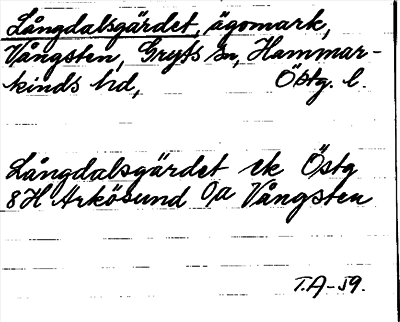 Långdalsgärdet, ägomark,
Vångsten, Gryts sn, Hammar-
kinds hd, Östg. l.
Långdalsgärdet ek Östg
8H Arkösund 0a Vångsten
T.A-59.